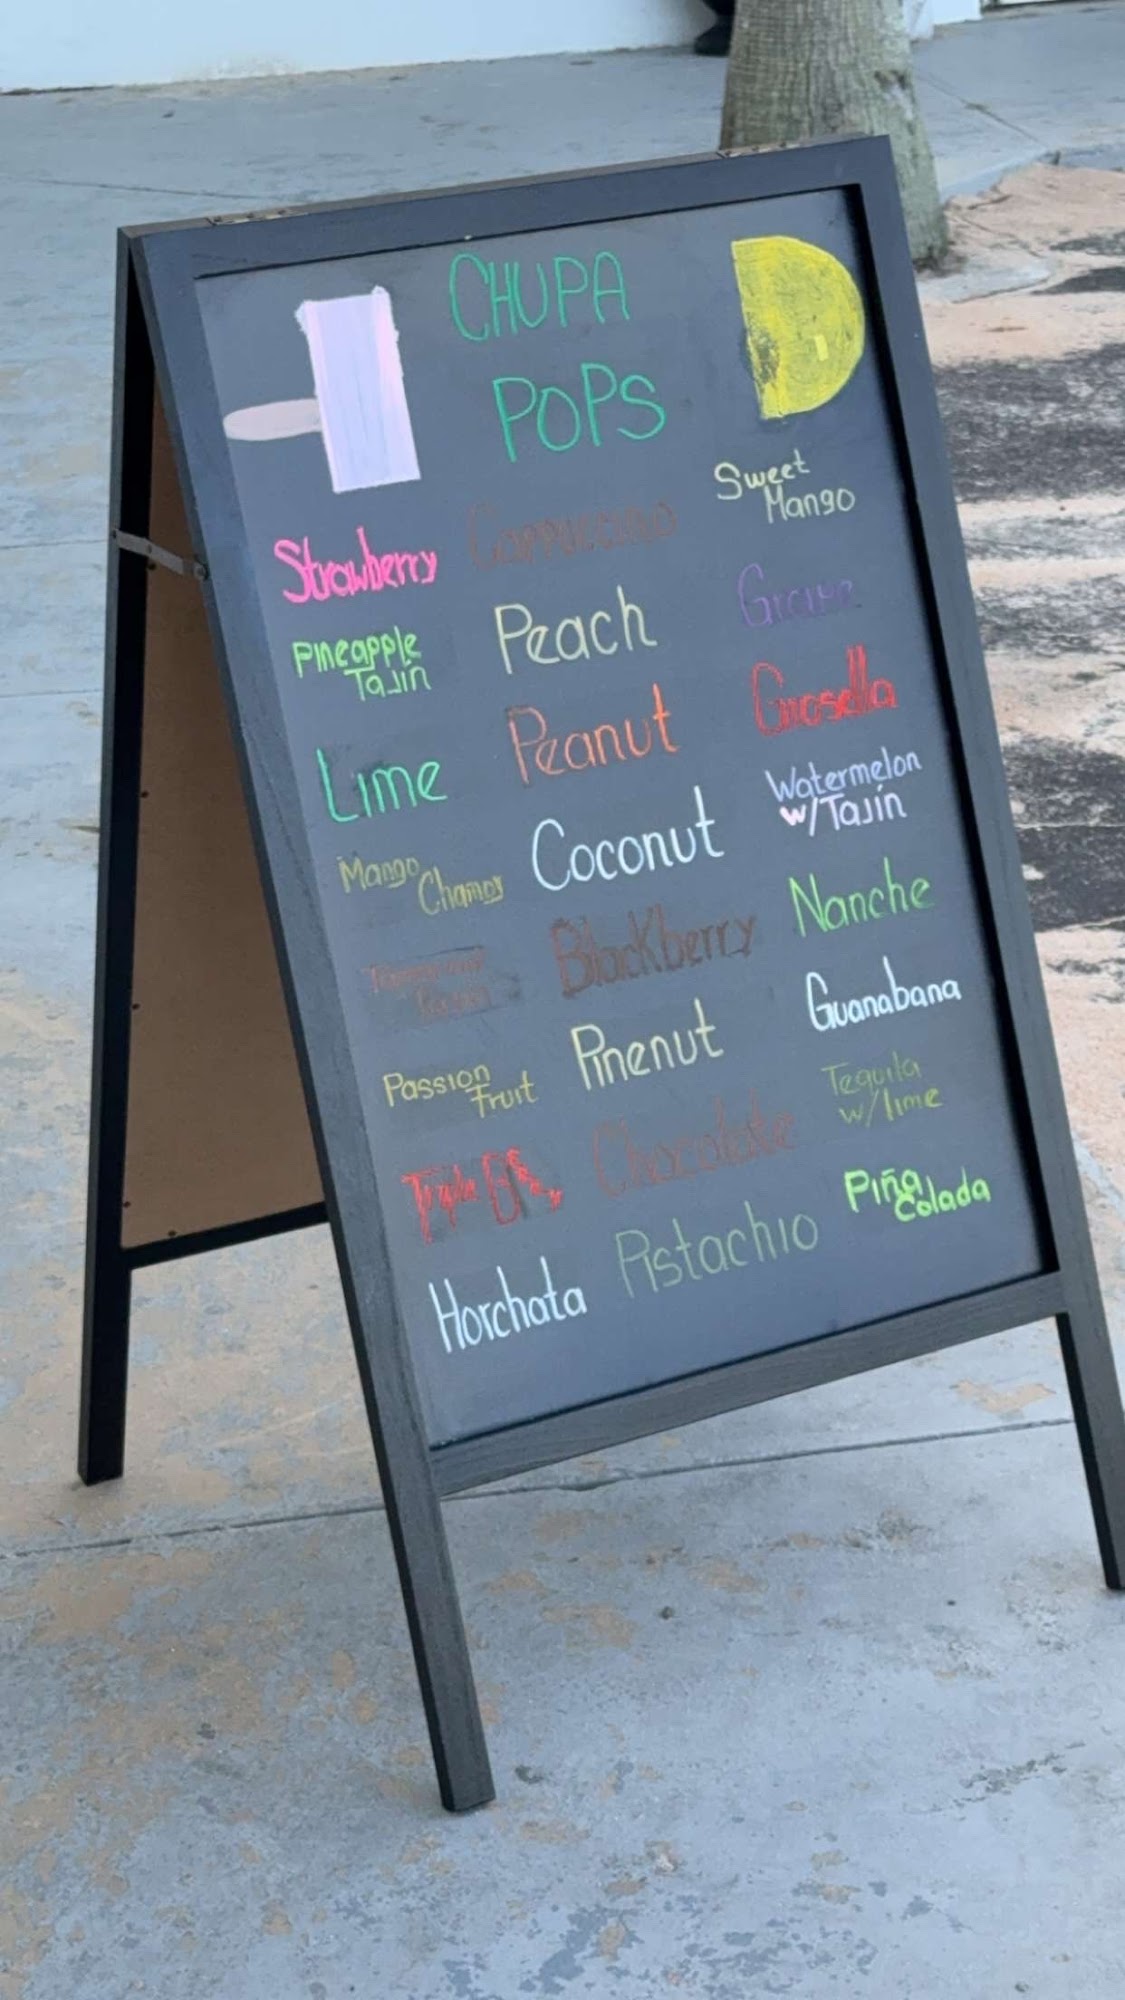 CHUPA
POPS
Strawberry
Pineapple
Tajín
Lime
Mango
Chamoy
Passion
Fruit
Triple
Horchata
Cappuccino
Peach
Peanut
Coconut
Blackberry
Pinenut
Chocolate
Pistachio
Sweet
Mango
Grape
Grosella
Watermelon
w/Tajín
Nanche
Guanabana
Tequila
w/lime
Piña
Colada